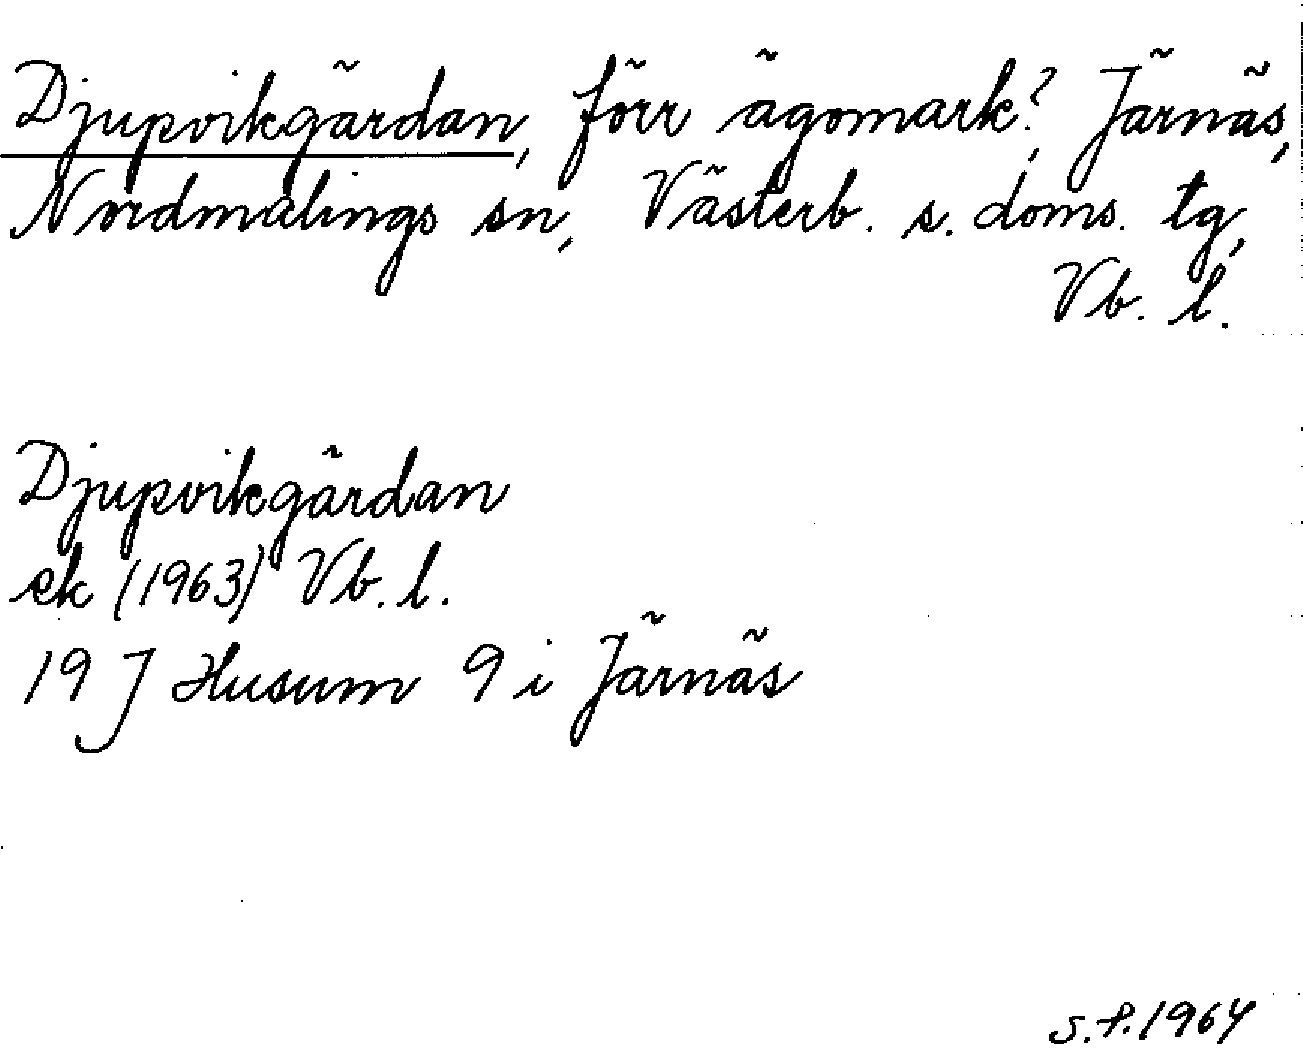 Djupvikgärdan, förr ägomark?, Järnäs,
Nordmalings sn, Västerb. s. doms. tg,
Vb. l.
Djupvikgärdan
ek (1963) Vb. l.
19 J Husum 9 i Järnäs
S.P. 1964